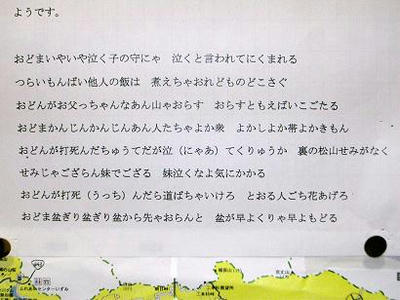 ようです。
おどまいやいや泣く子の守にゃ　泣くと言われてにくまれる
つらいもんばい他人の飯は　煮えちゃおれどものどこさぐ
おどんがお父っちゃんなあん山ゃおらす　おらすともえばいこごたる
おどまかんじんかんじんあん人たちゃよか衆　よかしよか帯よかきもん
おどんが打死んだちゅうてだが泣（にゃあ）てくりゅうか　裏の松山せみがなく
せみじゃござらん妹でござる　妹泣くなよ気にかかる
おどんが打死（うっち）んだら道ばちゃいけろ　とおる人ごち花あげろ
おどま盆ぎり盆ぎり盆から先ゃおらんと　盆が早よくりゃ早よもどる